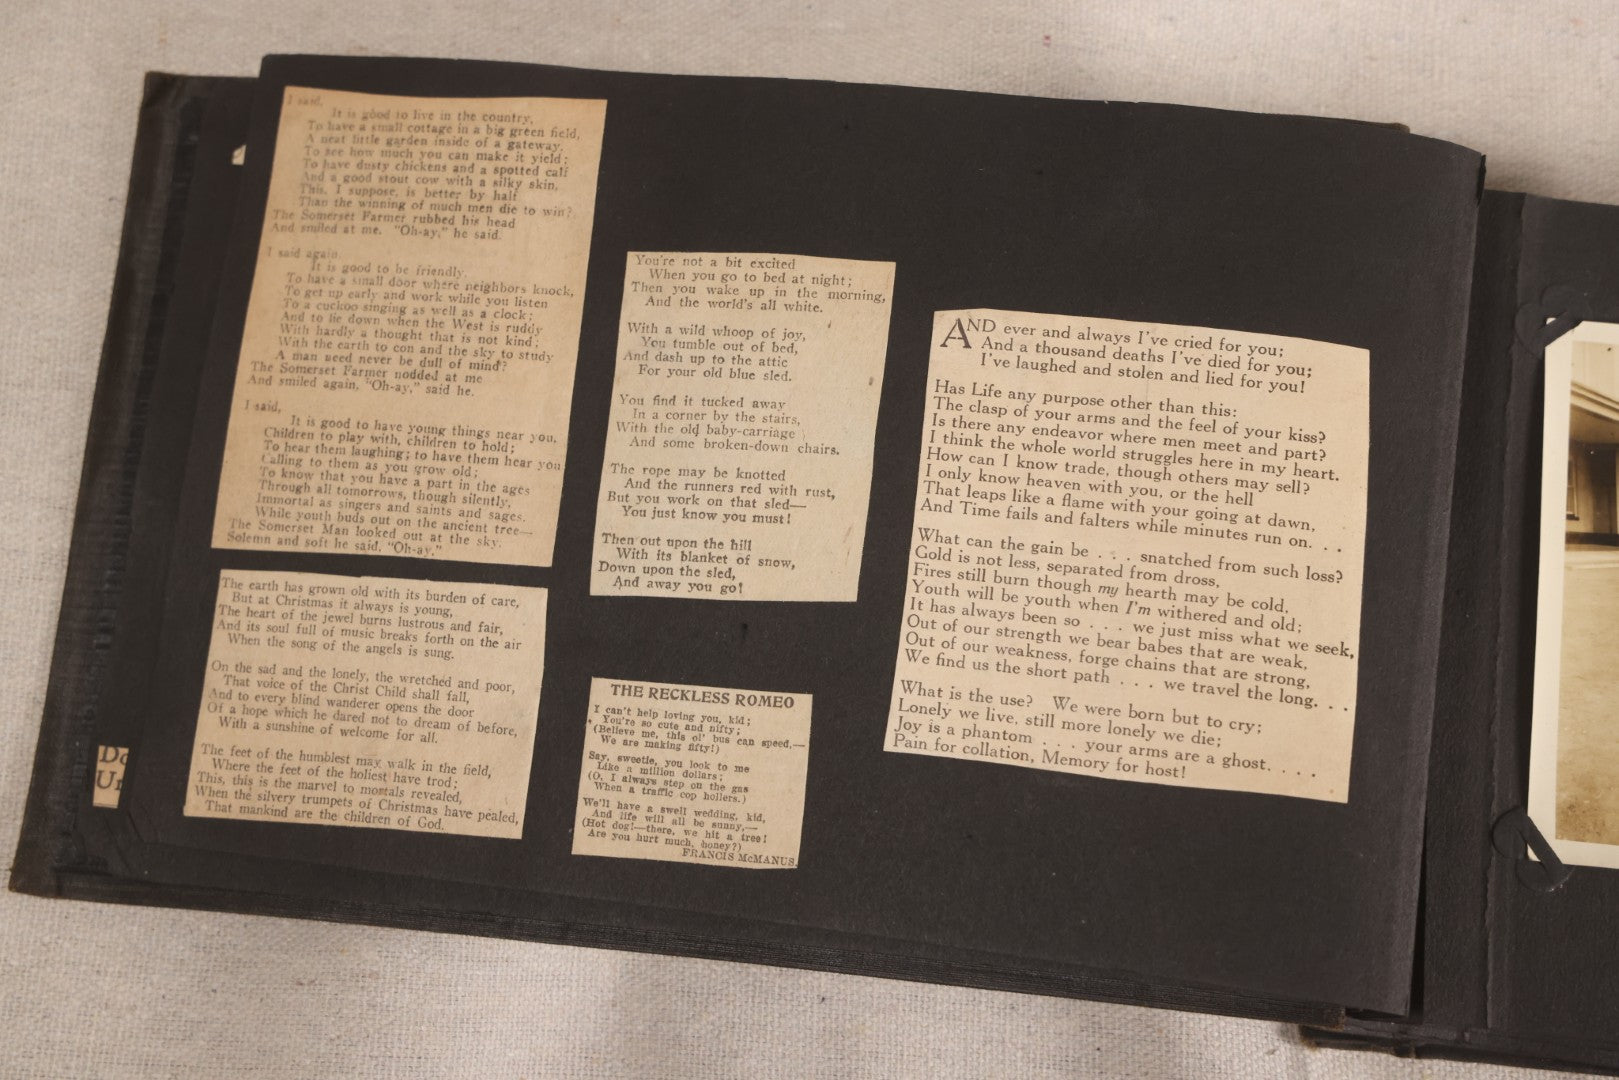 I said,
It is good to live in the country,
To have a small cottage in a big green field,
A neat little garden inside of a gateway,
To see how much you can make it yield;
To have dusty chickens and a spotted calf
And a good stout cow with a silky skin,
This, I suppose, is better by half
Than the winning of much men die to win?
The Somerset Farmer rubbed his head
And smiled at me. "Oh-ay," he said.
I said again,
It is good to be friendly,
To have a small door where neighbors knock,
To get up early and work while you listen
To a cuckoo singing as well as a clock;
And to lie down when the West is ruddy
With hardly a thought that is not kind;
With the earth to con and the sky to study
A man need never be dull of mind?
The Somerset Farmer nodded at me
And smiled again, "Oh-ay," said he.
I said,
It is good to have young things near you,
Children to play with, children to hold;
To hear them laughing; to have them hear you
Calling to them as you grow old;
To know that you have a part in the ages
Through all tomorrows, though silently,
Immortal as singers and saints and sages.
While youth buds out on the ancient tree—
The Somerset Man looked out at the sky.
Solemn and soft he said, "Oh-ay."
The earth has grown old with its burden of care,
But at Christmas it always is young,
The heart of the jewel burns lustrous and fair,
And its soul full of music breaks forth on the air
When the song of the angels is sung.
On the sad and the lonely, the wretched and poor,
That voice of the Christ Child shall fall,
And to every blind wanderer opens the door
Of a hope which he dared not to dream of before,
With a sunshine of welcome for all.
The feet of the humblest may walk in the field,
Where the feet of the holiest have trod;
This, this is the marvel to mortals revealed,
When the silvery trumpets of Christmas have pealed,
That mankind are the children of God.
Do
Un
You're not a bit excited
When you go to bed at night;
Then you wake up in the morning,
And the world's all white.
With a wild whoop of joy,
You tumble out of bed,
And dash up to the attic
For your old blue sled.
You find it tucked away
In a corner by the stairs,
With the old baby-carriage
And some broken-down chairs.
The rope may be knotted
And the runners red with rust,
But you work on that sled—
You just know you must!
Then out upon the hill
With its blanket of snow,
Down upon the sled,
And away you go!
THE RECKLESS ROMEO
I can't help loving you, kid;
You're so cute and nifty;
(Believe me, this ol' bus can speed,—
We are making fifty!)
Say, sweetie, you look to me
Like a million dollars;
(O, I always step on the gas
When a traffic cop hollers.)
We'll have a swell wedding, kid,
And life will all be sunny,—
(Hot dog!—there, we hit a tree!
Are you hurt much, honey?)
FRANCIS McMANUS.
AND ever and always I've cried for you;
And a thousand deaths I've died for you;
I've laughed and stolen and lied for you!
Has Life any purpose other than this:
The clasp of your arms and the feel of your kiss?
Is there any endeavor where men meet and part?
I think the whole world struggles here in my heart.
How can I know trade, though others may sell?
I only know heaven with you, or the hell
That leaps like a flame with your going at dawn,
And Time fails and falters while minutes run on. . .
What can the gain be . . . snatched from such loss?
Gold is not less, separated from dross,
Fires still burn though my hearth may be cold.
Youth will be youth when I'm withered and old;
It has always been so . . . we just miss what we seek,
Out of our strength we bear babes that are weak,
Out of our weakness, forge chains that are strong,
We find us the short path . . . we travel the long. . .
What is the use? We were born but to cry;
Lonely we live, still more lonely we die;
Joy is a phantom . . . your arms are a ghost. . . .
Pain for collation, Memory for host!